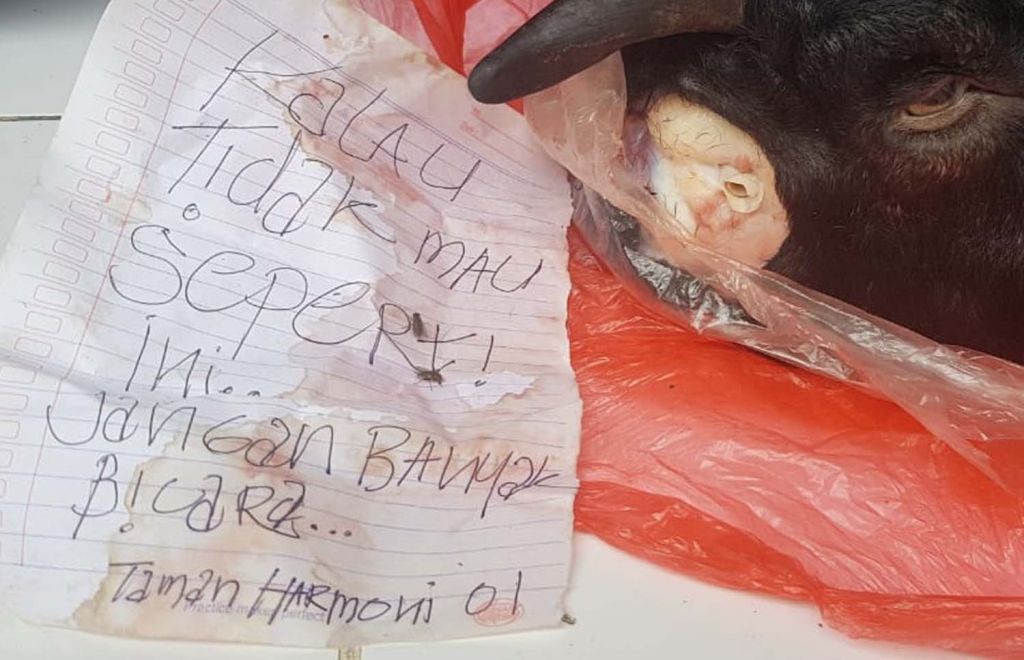 KALAU
Tidak MAU
SEPERti!
ini..
JANGAN BANYAK
BiCARA...
Taman HARMoni 01
Practice makes perfect